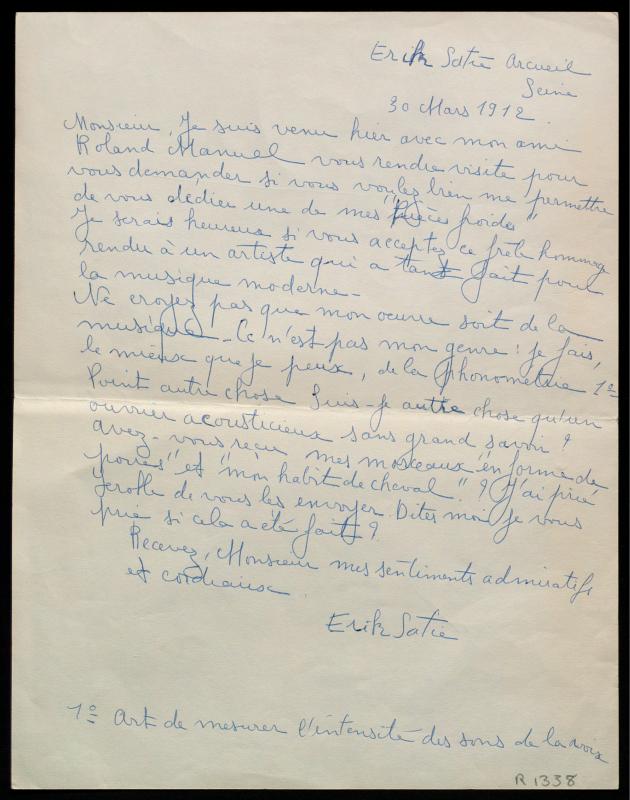 Erik Satie Arcueil
Seine
30 Mars 1912.
Monsieur, Je suis venu hier avec mon ami
Roland Manuel vous rendre visite pour
vous demander si vous voulez bien me permettre
de vous dédier une de mes "Pièces froides"
Je serais heureux si vous acceptez ce frêle hommage
rendu à un artiste qui a tant fait pour
la musique moderne -
Ne croyez pas que mon oeuvre soit de la
musique - Ce n'est pas mon genre : je fais,
le mieux que je peux, de la phonométrie 1º
Point autre chose Suis-je autre chose qu'un
ouvrier acousticieux sans grand savoir ?
avez-vous reçu mes morceaux "en forme de
poires" et "mon habit de cheval" ? J'ai prié
Jerolle de vous les envoyer. Dites moi je vous
prie si cela a été fait ?
Recevez, Monsieur mes sentiments admiratifs
et cordiaux.
Erik Satie
1º Art de mesurer l'intensité des sons de la voix
R 1338